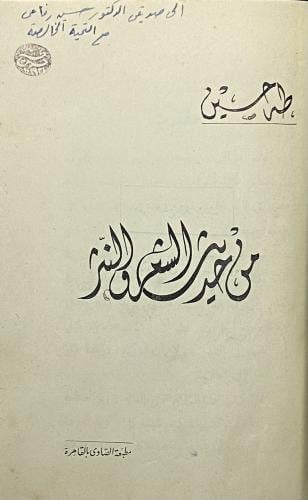 الى صديقى الدكتور حسين رفاعى
مع التحية الخالصة
طه حسين
من حديث الشعر والنثر
مطبعة الصاوى بالقاهرة